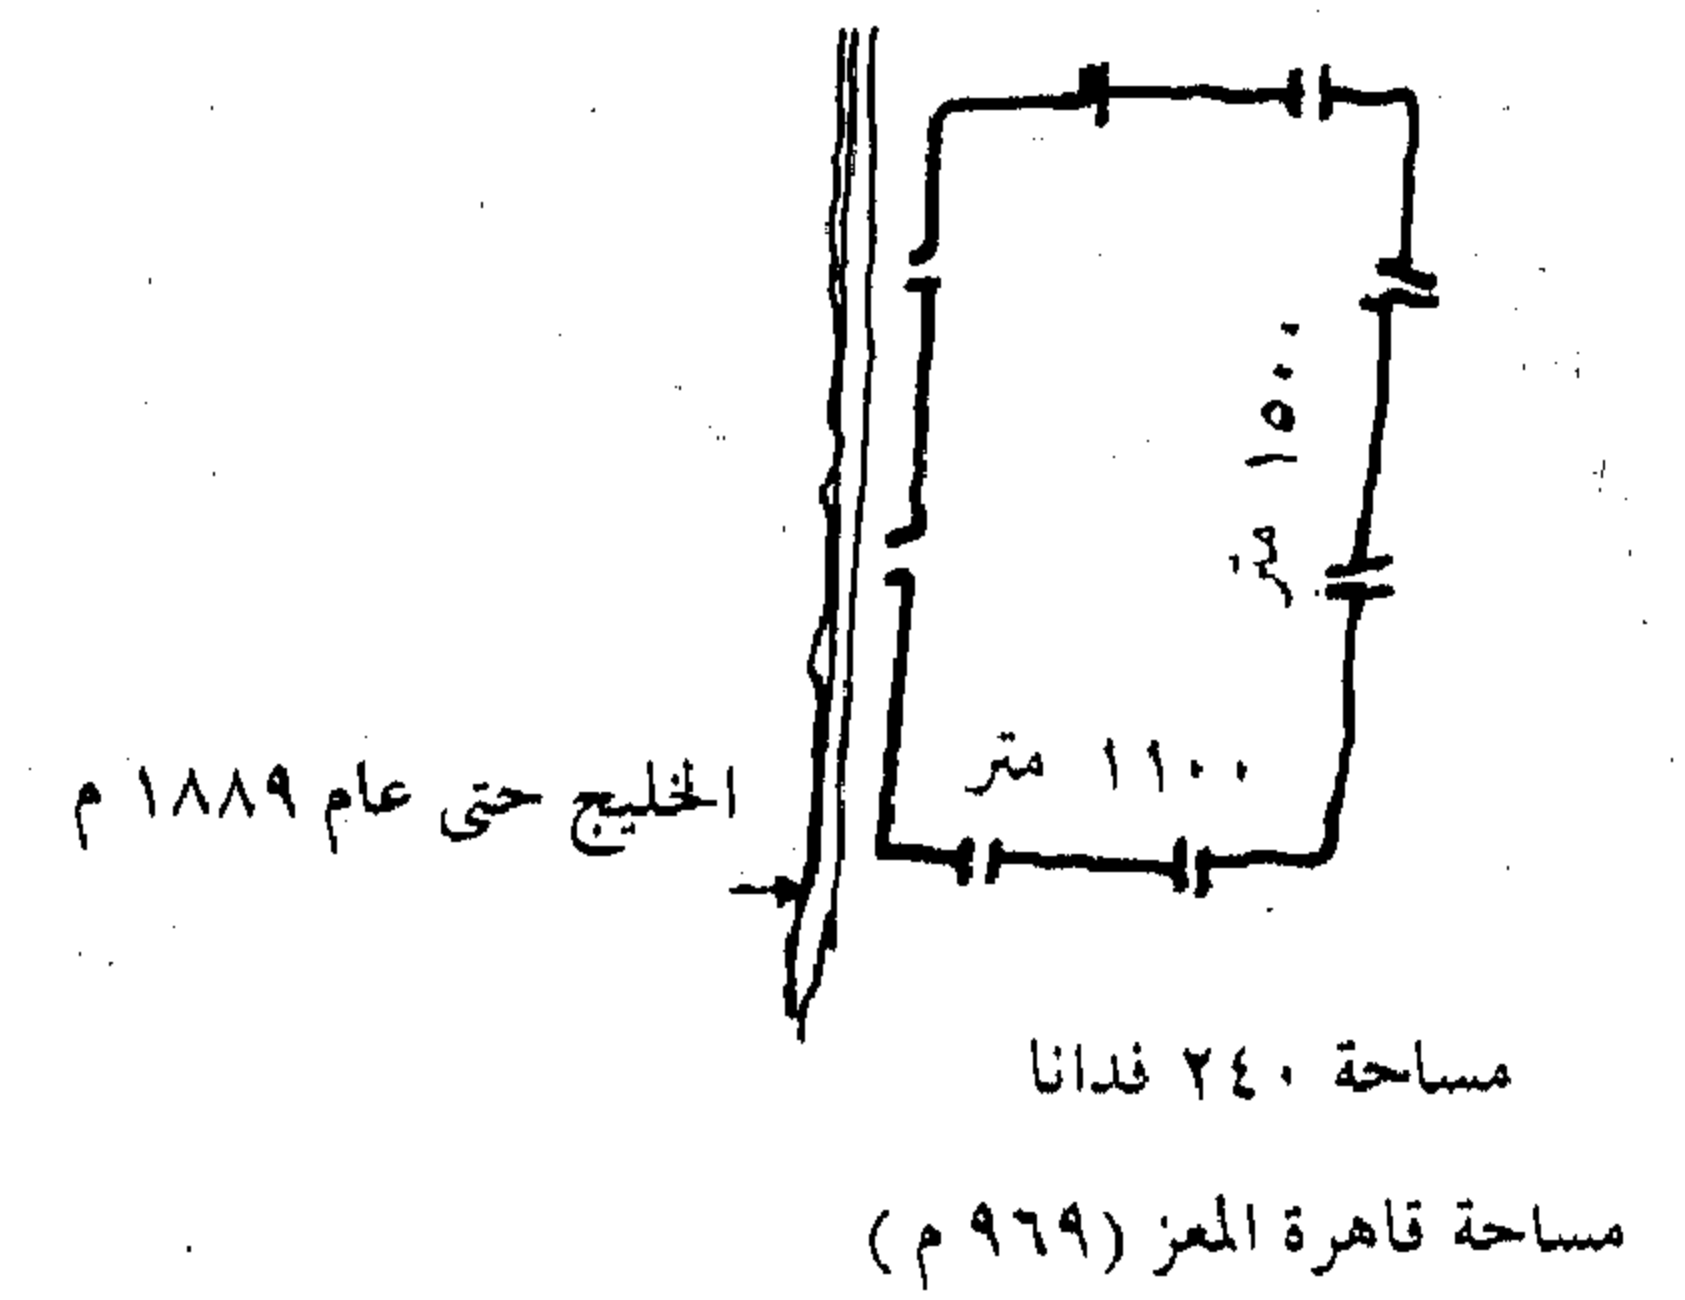 ١٥٠٠ متر
١١٠٠ متر
الخليج حتى عام ١٨٨٩ م
مساحة ٢٤٠ فدانا
مساحة قاهرة المعز (٩٦٩ م)